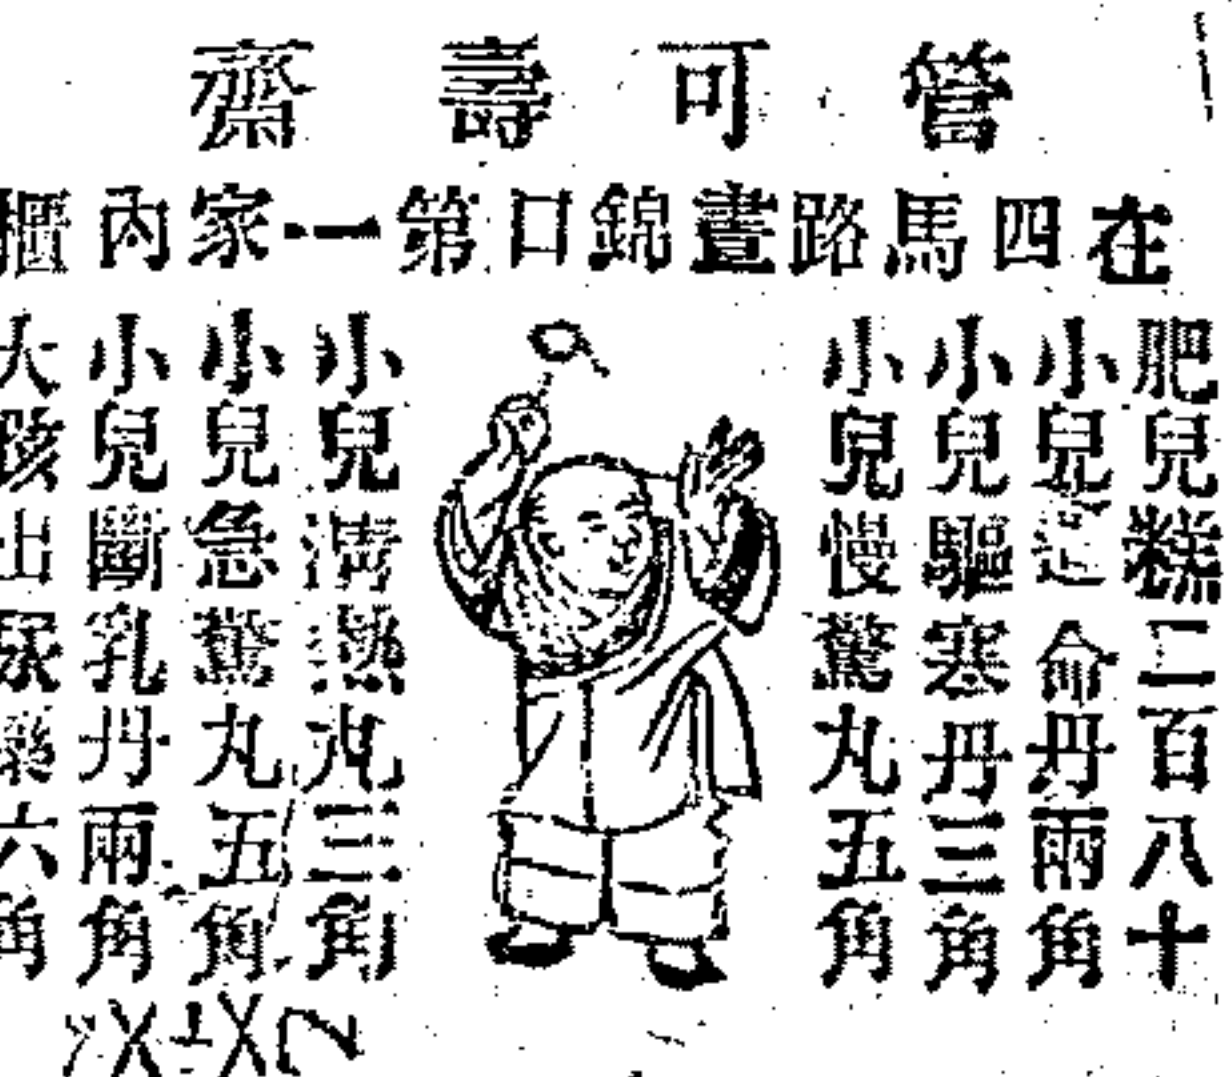 管可壽齋
在四馬路晝錦口第一家內櫃
肥兒糕二百八十
小兒 命丹兩角
小兒驅寒丹三角
小兒慢驚丸五角
小兒清熱丸三角
小兒急驚丸五角
小兒斷乳丹兩角
大孩出尿藥六角